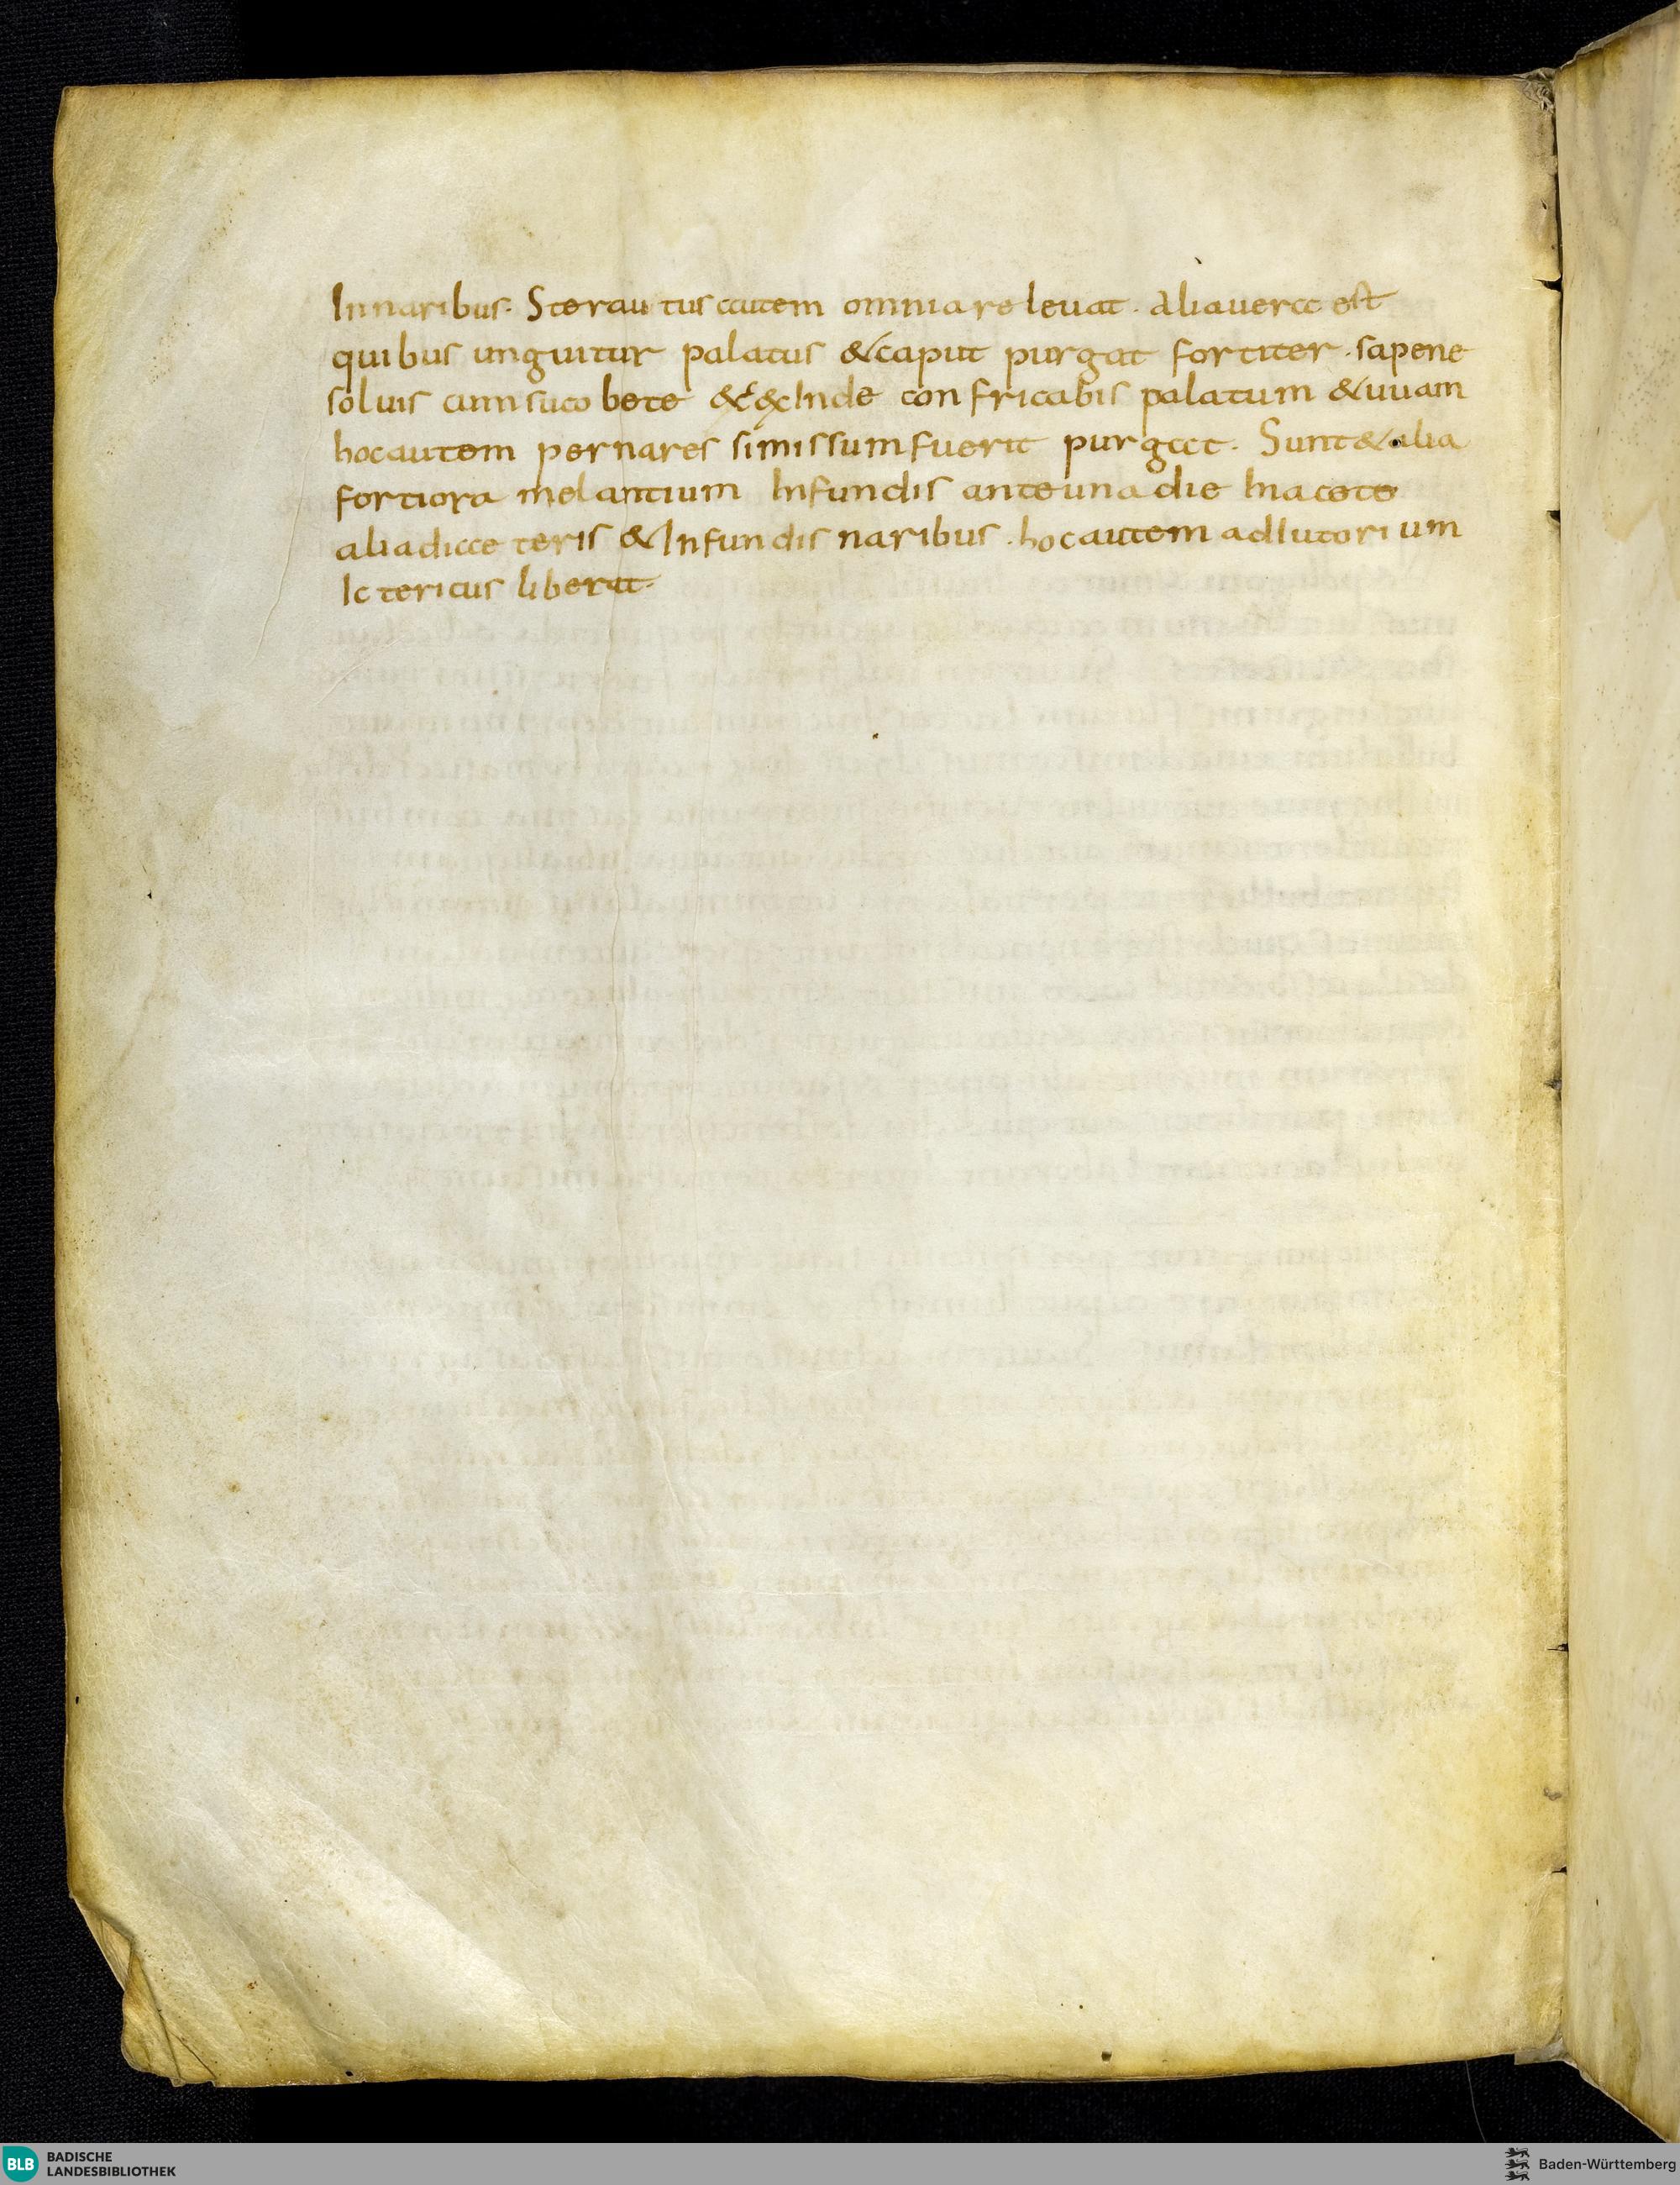 Innaribus. Sterau tus autem omnia releuat. Aliauera est
quibus unguitur palatus &caput purgat fortiter. sapene
soluis cumsuco bete & exInde confricabis palatum &uuam
hocautem pernares simissumfuerit purgat. Sunt&alia
fortiora melantium Infundis anteunadie Inaceto
aliadiae teris &Infundis naribus. hocautem adIutorium
Ictericus liberat.
BLB BADISCHE
LANDESBIBLIOTHEK
Baden-Württemberg